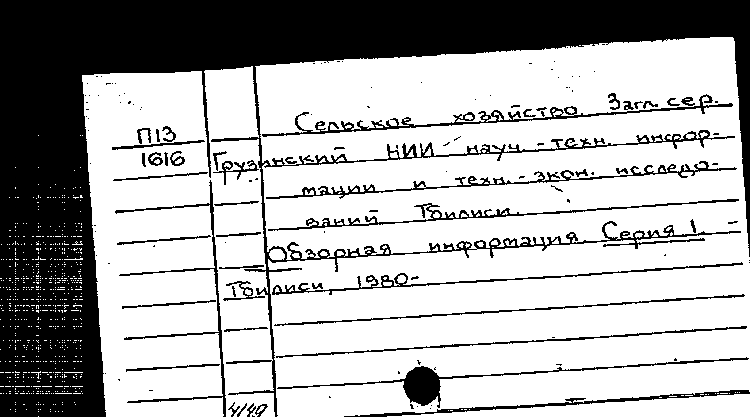 Сельское хозяйство. Загл. сер.
П13
1616 Грузинский НИИ науч.-техн. инфор-
мации и техн.-экон. исследо-
ваний Тбилиси.
Обзорная информация. Серия 1. -
Тбилиси, 1980-